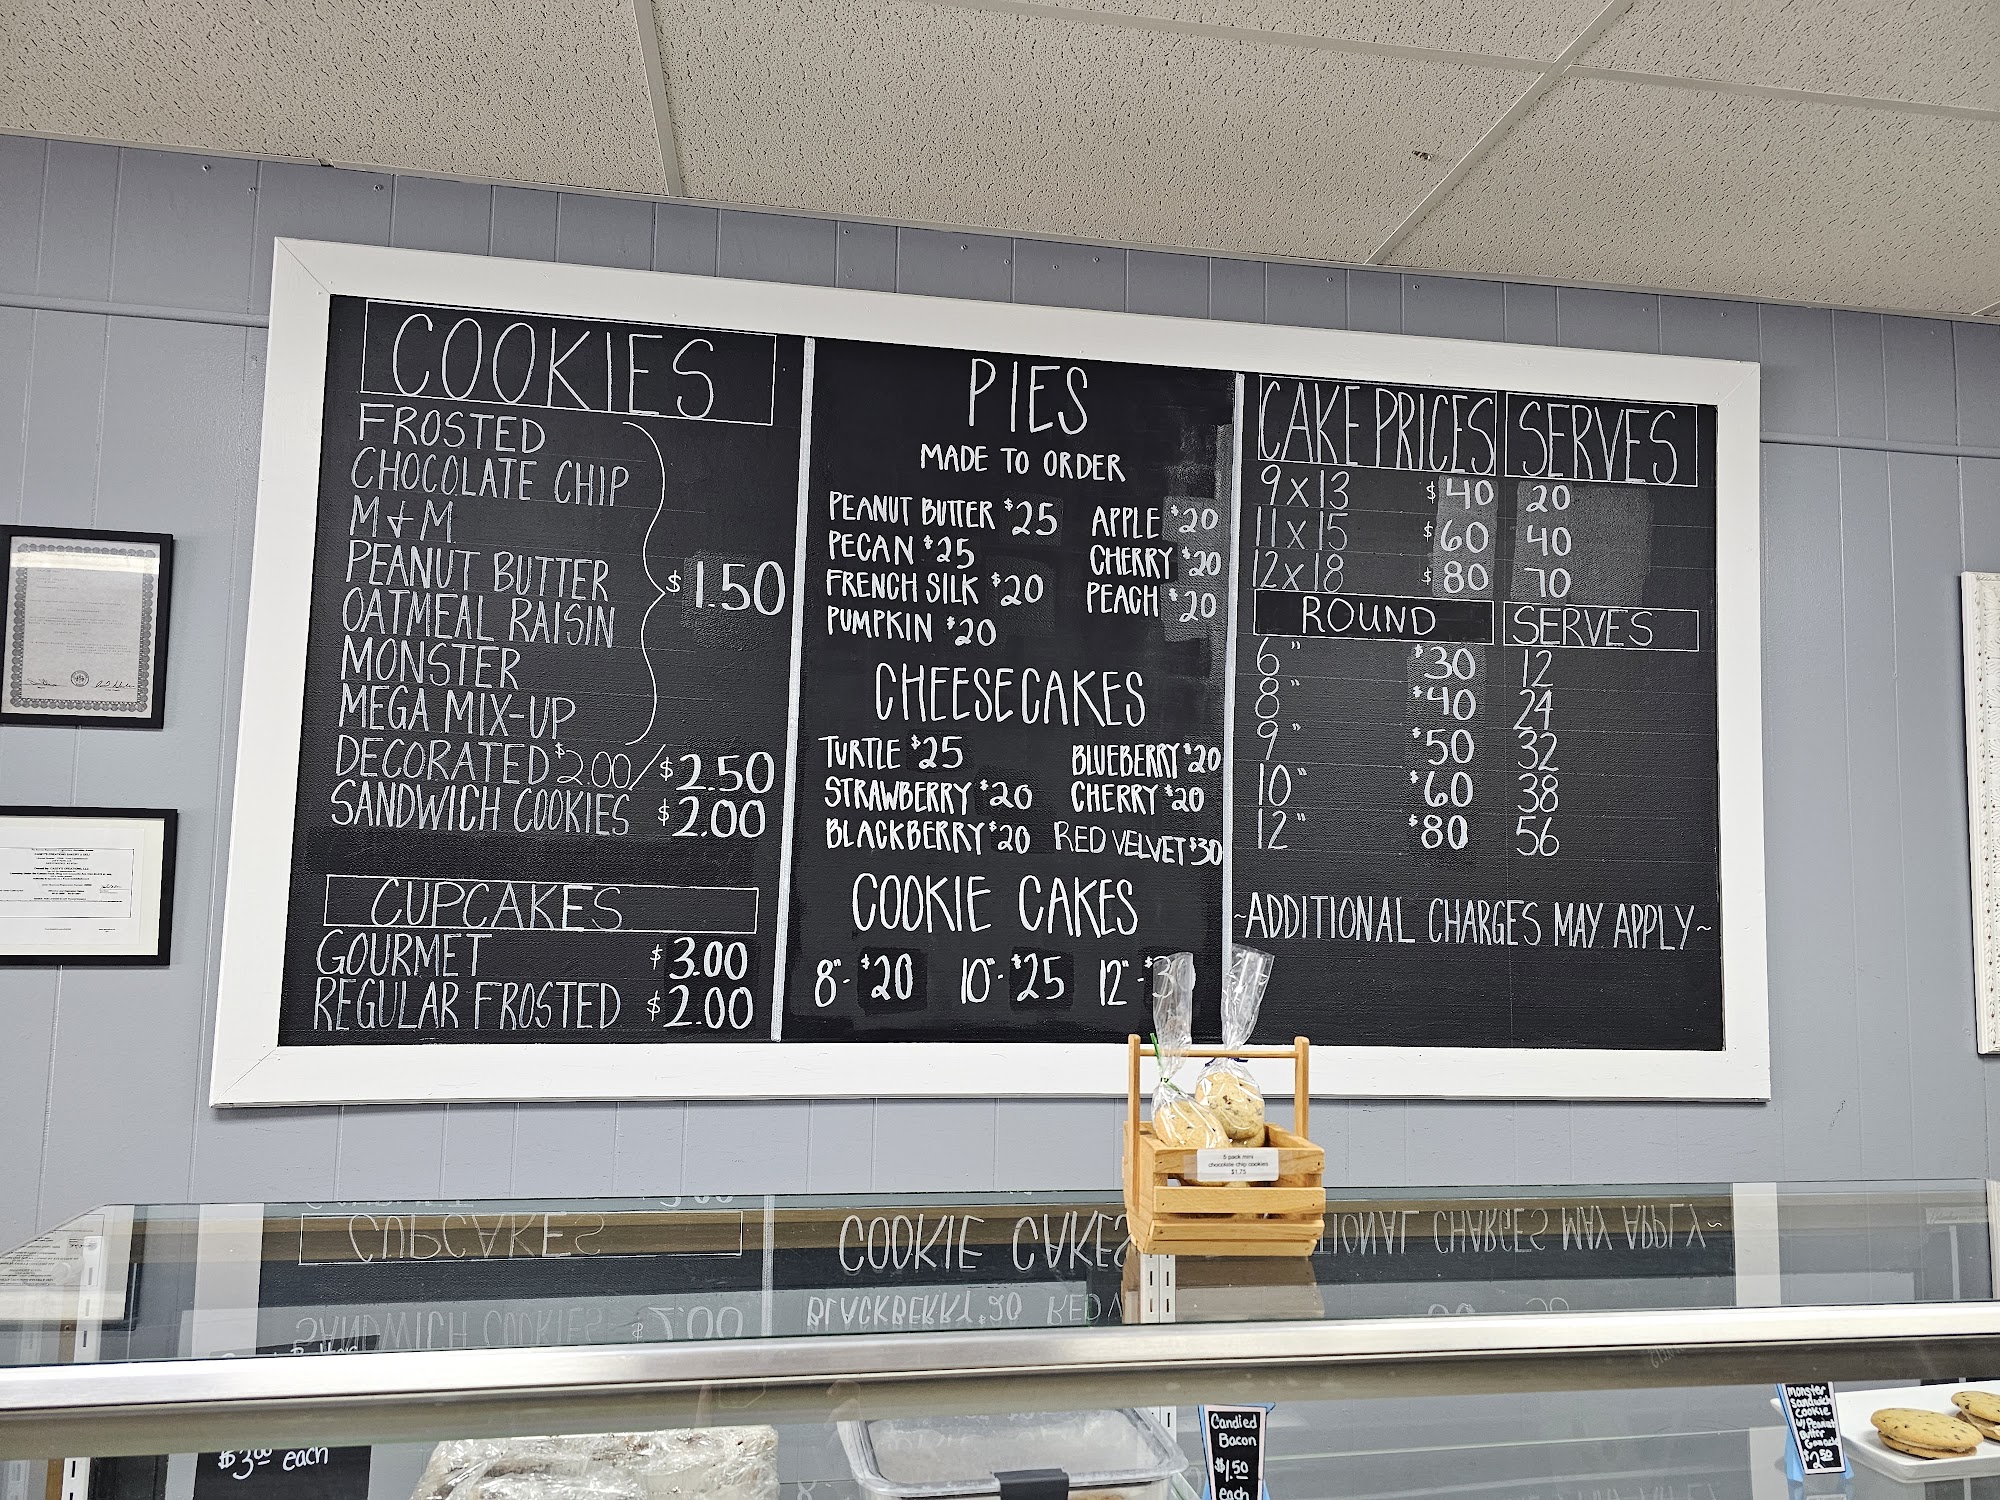 COOKIES
FROSTED
CHOCOLATE CHIP
M & M
PEANUT BUTTER
OATMEAL RAISIN
MONSTER
MEGA MIX-UP
$1.50
DECORATED $2.00/$2.50
SANDWICH COOKIES $2.00
CUPCAKES
GOURMET $3.00
REGULAR FROSTED $2.00
PIES
MADE TO ORDER
PEANUT BUTTER $25
PECAN $25
FRENCH SILK $20
PUMPKIN $20
APPLE $20
CHERRY $20
PEACH $20
CHEESECAKES
TURTLE $25
STRAWBERRY $20
BLACKBERRY $20
BLUEBERRY $20
CHERRY $20
RED VELVET $30
COOKIE CAKES
8"- $20 10"- $25 12"-
CAKE PRICES SERVES
9 x 13 $40 20
11 x 15 $60 40
12 x 18 $80 70
ROUND SERVES
6" $30 12
8" $40 24
9" $50 32
10" $60 38
12" $80 56
~ADDITIONAL CHARGES MAY APPLY~
5 pack mini
chocolate chip cookies
$1.75
$3.00 each
Candied
Bacon
$1.50
each
Monster
Sandwich
Cookie
w/ Peanut
Butter
$2.50